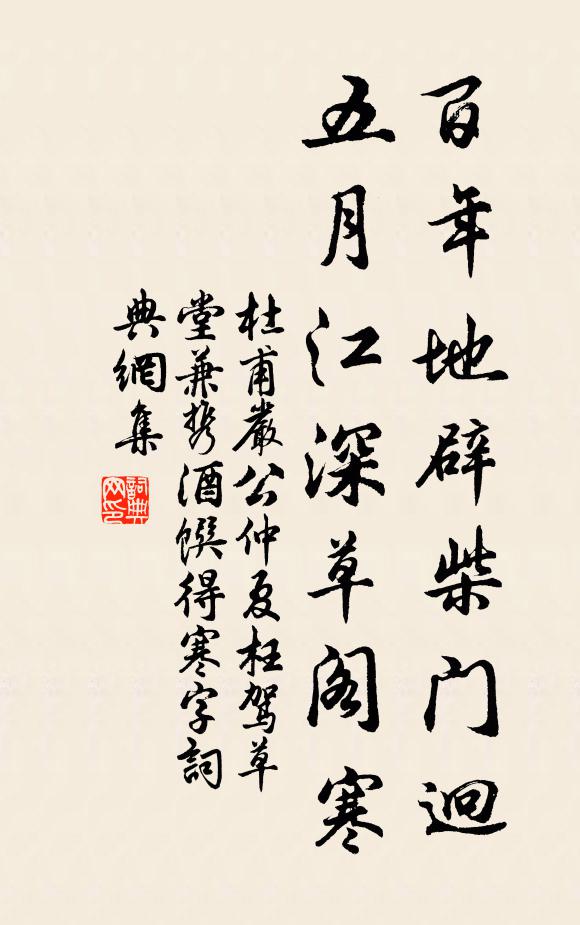 百年地辟柴门迥
五月江深草阁寒
杜甫嚴公仲夏枉驾草
堂兼携酒馔得寒字詞
典網集
詞典网印